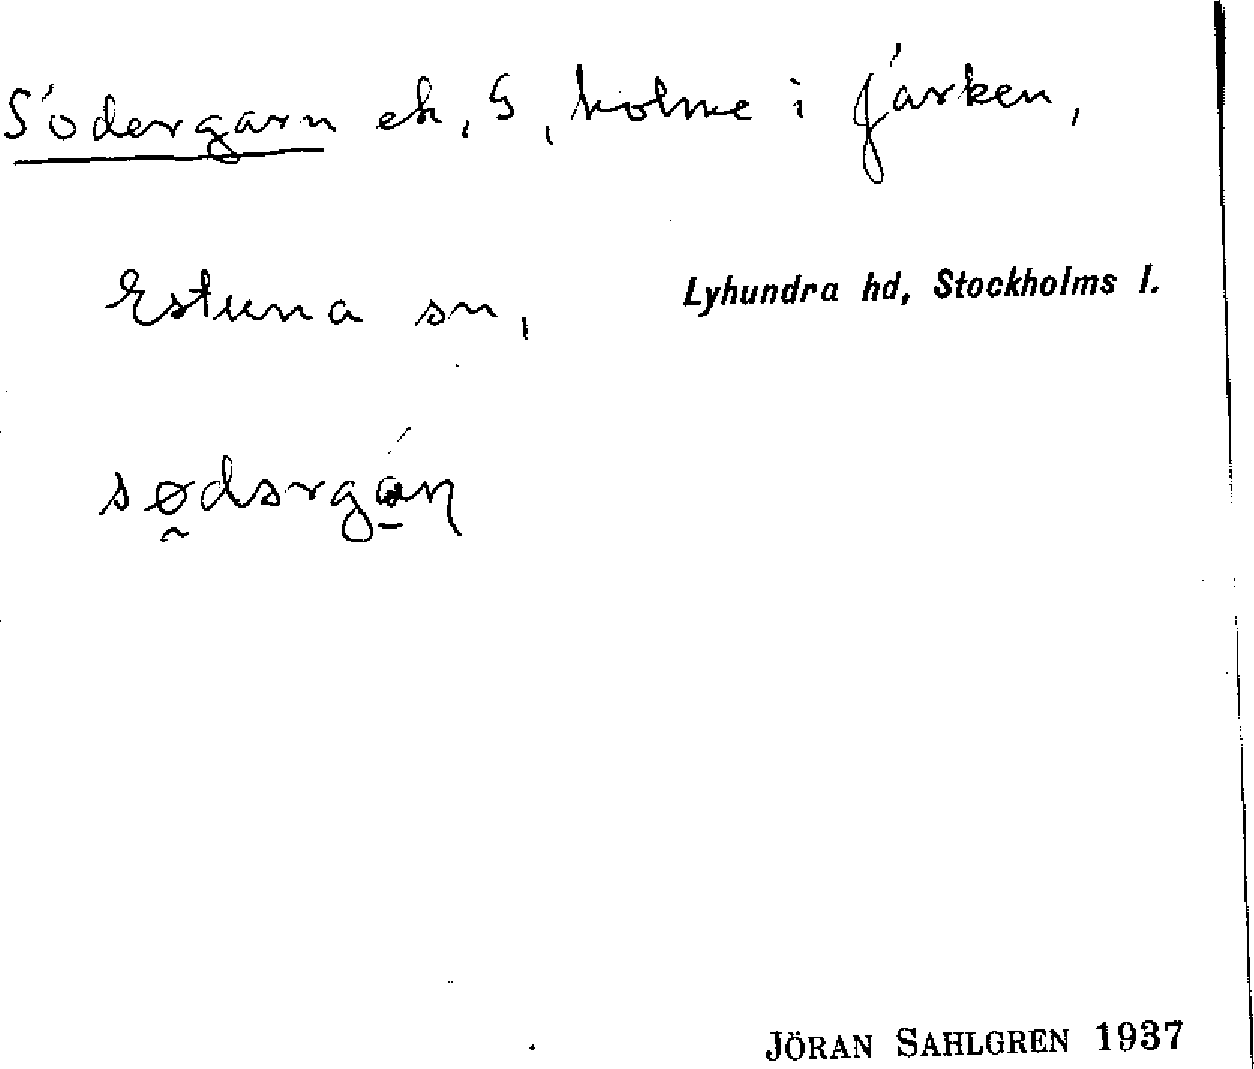 Södergarn ek. 5, holme i Järken,
Estuna sn, Lyhundra hd, Stockholms l.
JÖRAN SAHLGREN 1937